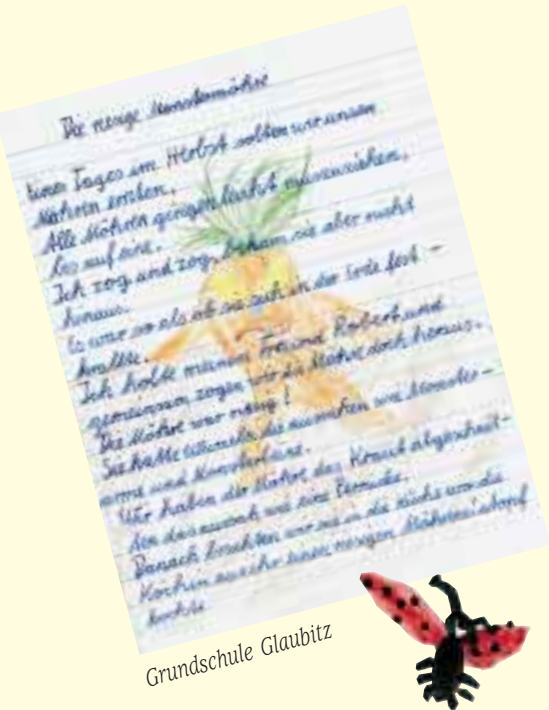 Die riesige Monstermöhre
Eines Tages im Herbst sollten wir unsere
Möhren ernten.
Alle Möhren gingen leicht rauszuziehen,
bis auf eine.
Ich zog und zog, bekam sie aber nicht
hinaus.
Es war so als ob sie sich in der Erde fest-
krallte.
Ich holte meinen Freund Robert und
gemeinsam zogen wir die Möhre doch heraus.
Die Möhre war riesig!
Sie hatte Wurzeln die aussahen wie Monster-
arme und Monsterbeine.
Wir haben der Möhre das Kraut abgeschnit-
ten das aussah wie eine
Danach brachten wir sie in die Küche wo die
Köchin aus ihr einen riesigen Möhreneintopf
kochte.
Grundschule Glaubitz